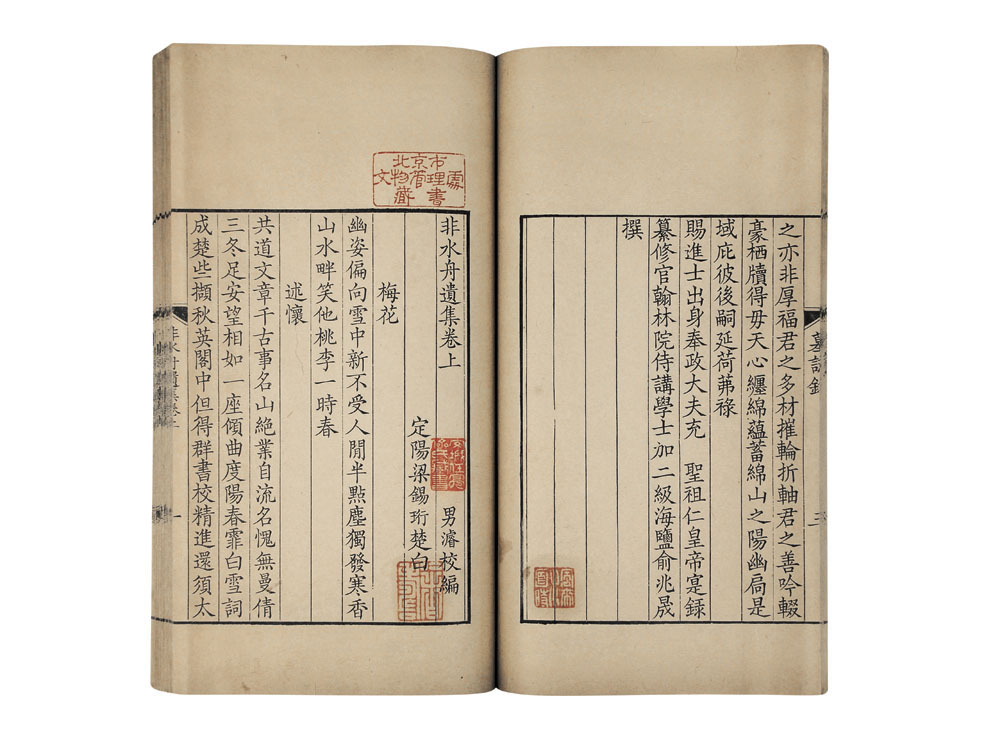 之亦非厚福君之多材摧輪折軸君之善吟輟
豪栖牘得毋天心纏綿蘊蓄綿山之陽幽扃是
域庇彼後嗣延荷茀祿
賜進士出身奉政大夫充 聖祖仁皇帝寔錄
纂修官翰林院侍講學士加二級海鹽俞兆晟
撰
墓誌銘
三
北京市文物管理處藏書
非水舟遺集卷上
男濬校編
定陽梁錫珩楚白
梅花
幽姿偏向雪中新不受人閒半點塵獨發寒香
山水畔笑他桃李一時春
述懷
共道文章千古事名山絶業自流名愧無曼倩
三冬足安望相如一座傾曲度陽春霏白雪詞
成楚些擷秋英閣中但得群書校精進還須太
非水舟遺集卷上
一